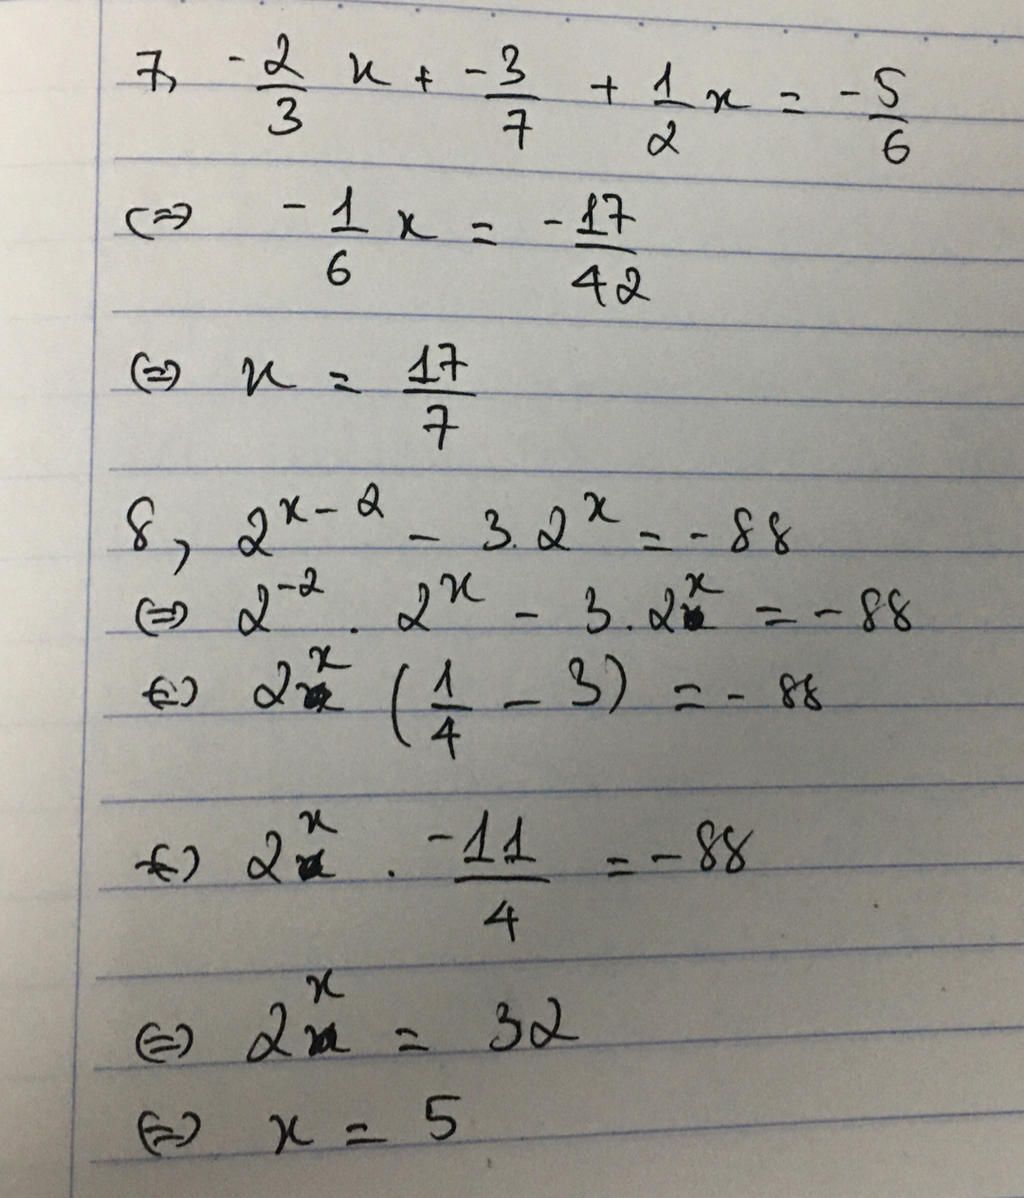 7, -2/3 x + -3/7 + 1/2 x = -5/6
(=) -1/6 x = -17/42
(=) x = 17/7
8, 2^{x-2} - 3.2^x = -88
(=) 2^{-2} . 2^x - 3.2^x = -88
(=) 2^x (1/4 - 3) = -88
(=) 2^x . -11/4 = -88
(=) 2^x = 32
(=) x = 5